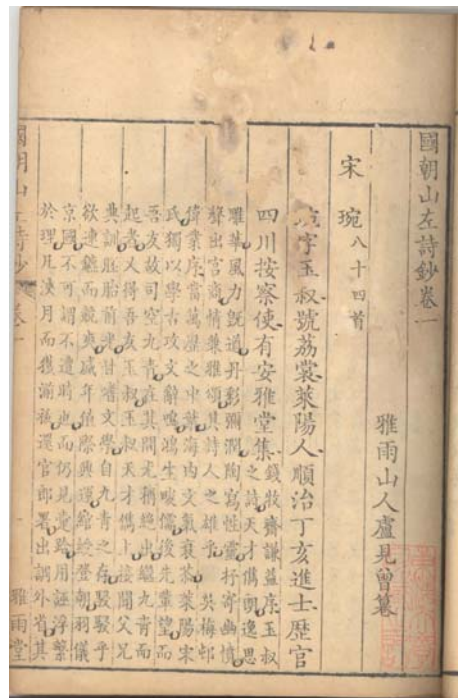 國朝山左詩鈔卷一
雅雨山人盧見曾纂
宋琬八十四首
琬字玉叔號荔裳萊陽人順治丁亥進士歷官
四川按察使有安雅堂集
錢牧齋謙益序玉叔
之詩天才儁朗逸思
雕華風力既遒丹彩彌潤陶寫性靈抒寄幽憤
聲出宮商情兼雅頌其詩人之雄乎 吳梅邨
偉業序當萬曆之中葉海內文氣衰苶萊陽宋
氏獨以學古攻文辭鳴鴻生畯儒後先輩望而
吾友故司空九青在其間尤稱絕出繼九青而
起者又得吾友玉叔玉叔天才儁上接聞父兄
典訓胚胎前光甘嗜文學自九青之存駸駸乎
欲連鑣而競爽年値際興運綰綬登朝羽儀
京國不可謂不遭時也而仍見用誣浮繫
於理凡浹月而獲湔袚還官郎署出調外省其
國朝山左詩鈔 卷一 雅雨堂